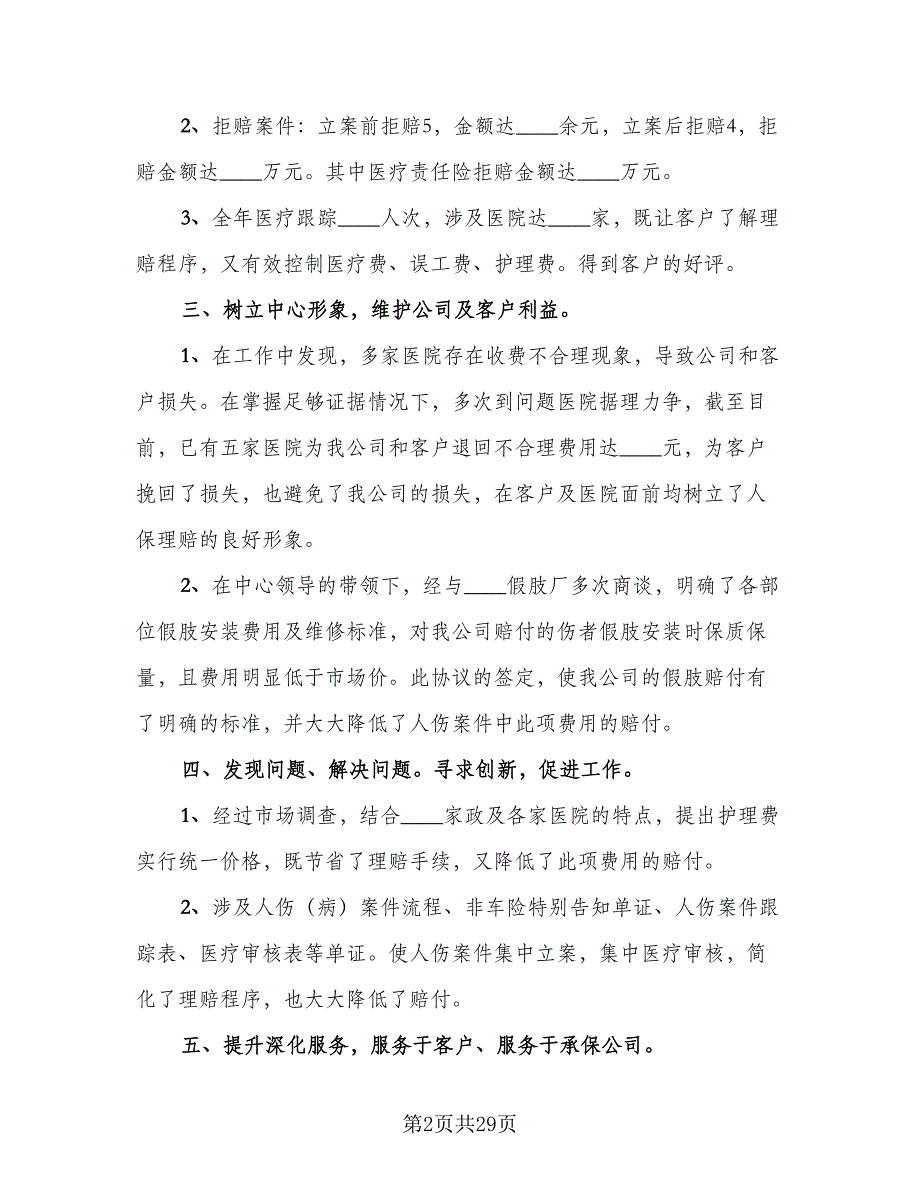 2、拒赔案件：立案前拒赔5，金额达____余元，立案后拒赔4，拒
赔金额达____万元。其中医疗责任险拒赔金额达____万元。
3、全年医疗跟踪____人次，涉及医院达____家，既让客户了解理
赔程序，又有效控制医疗费、误工费、护理费。得到客户的好评。
三、树立中心形象，维护公司及客户利益。
1、在工作中发现，多家医院存在收费不合理现象，导致公司和客
户损失。在掌握足够证据情况下，多次到问题医院据理力争，截至目
前，已有五家医院为我公司和客户退回不合理费用达____元，为客户
挽回了损失，也避免了我公司的损失，在客户及医院面前均树立了人
保理赔的良好形象。
2、在中心领导的带领下，经与____假肢厂多次商谈，明确了各部
位假肢安装费用及维修标准，对我公司赔付的伤者假肢安装时保质保
量，且费用明显低于市场价。此协议的签定，使我公司的假肢赔付有
了明确的标准，并大大降低了人伤案件中此项费用的赔付。
四、发现问题、解决问题。寻求创新，促进工作。
1、经过市场调查，结合____家政及各家医院的特点，提出护理费
实行统一价格，既节省了理赔手续，又降低了此项费用的赔付。
2、涉及人伤（病）案件流程、非车险特别告知单证、人伤案件跟
踪表、医疗审核表等单证。使人伤案件集中立案，集中医疗审核，简
化了理赔程序，也大大降低了赔付。
五、提升深化服务，服务于客户、服务于承保公司。
第2页共29页